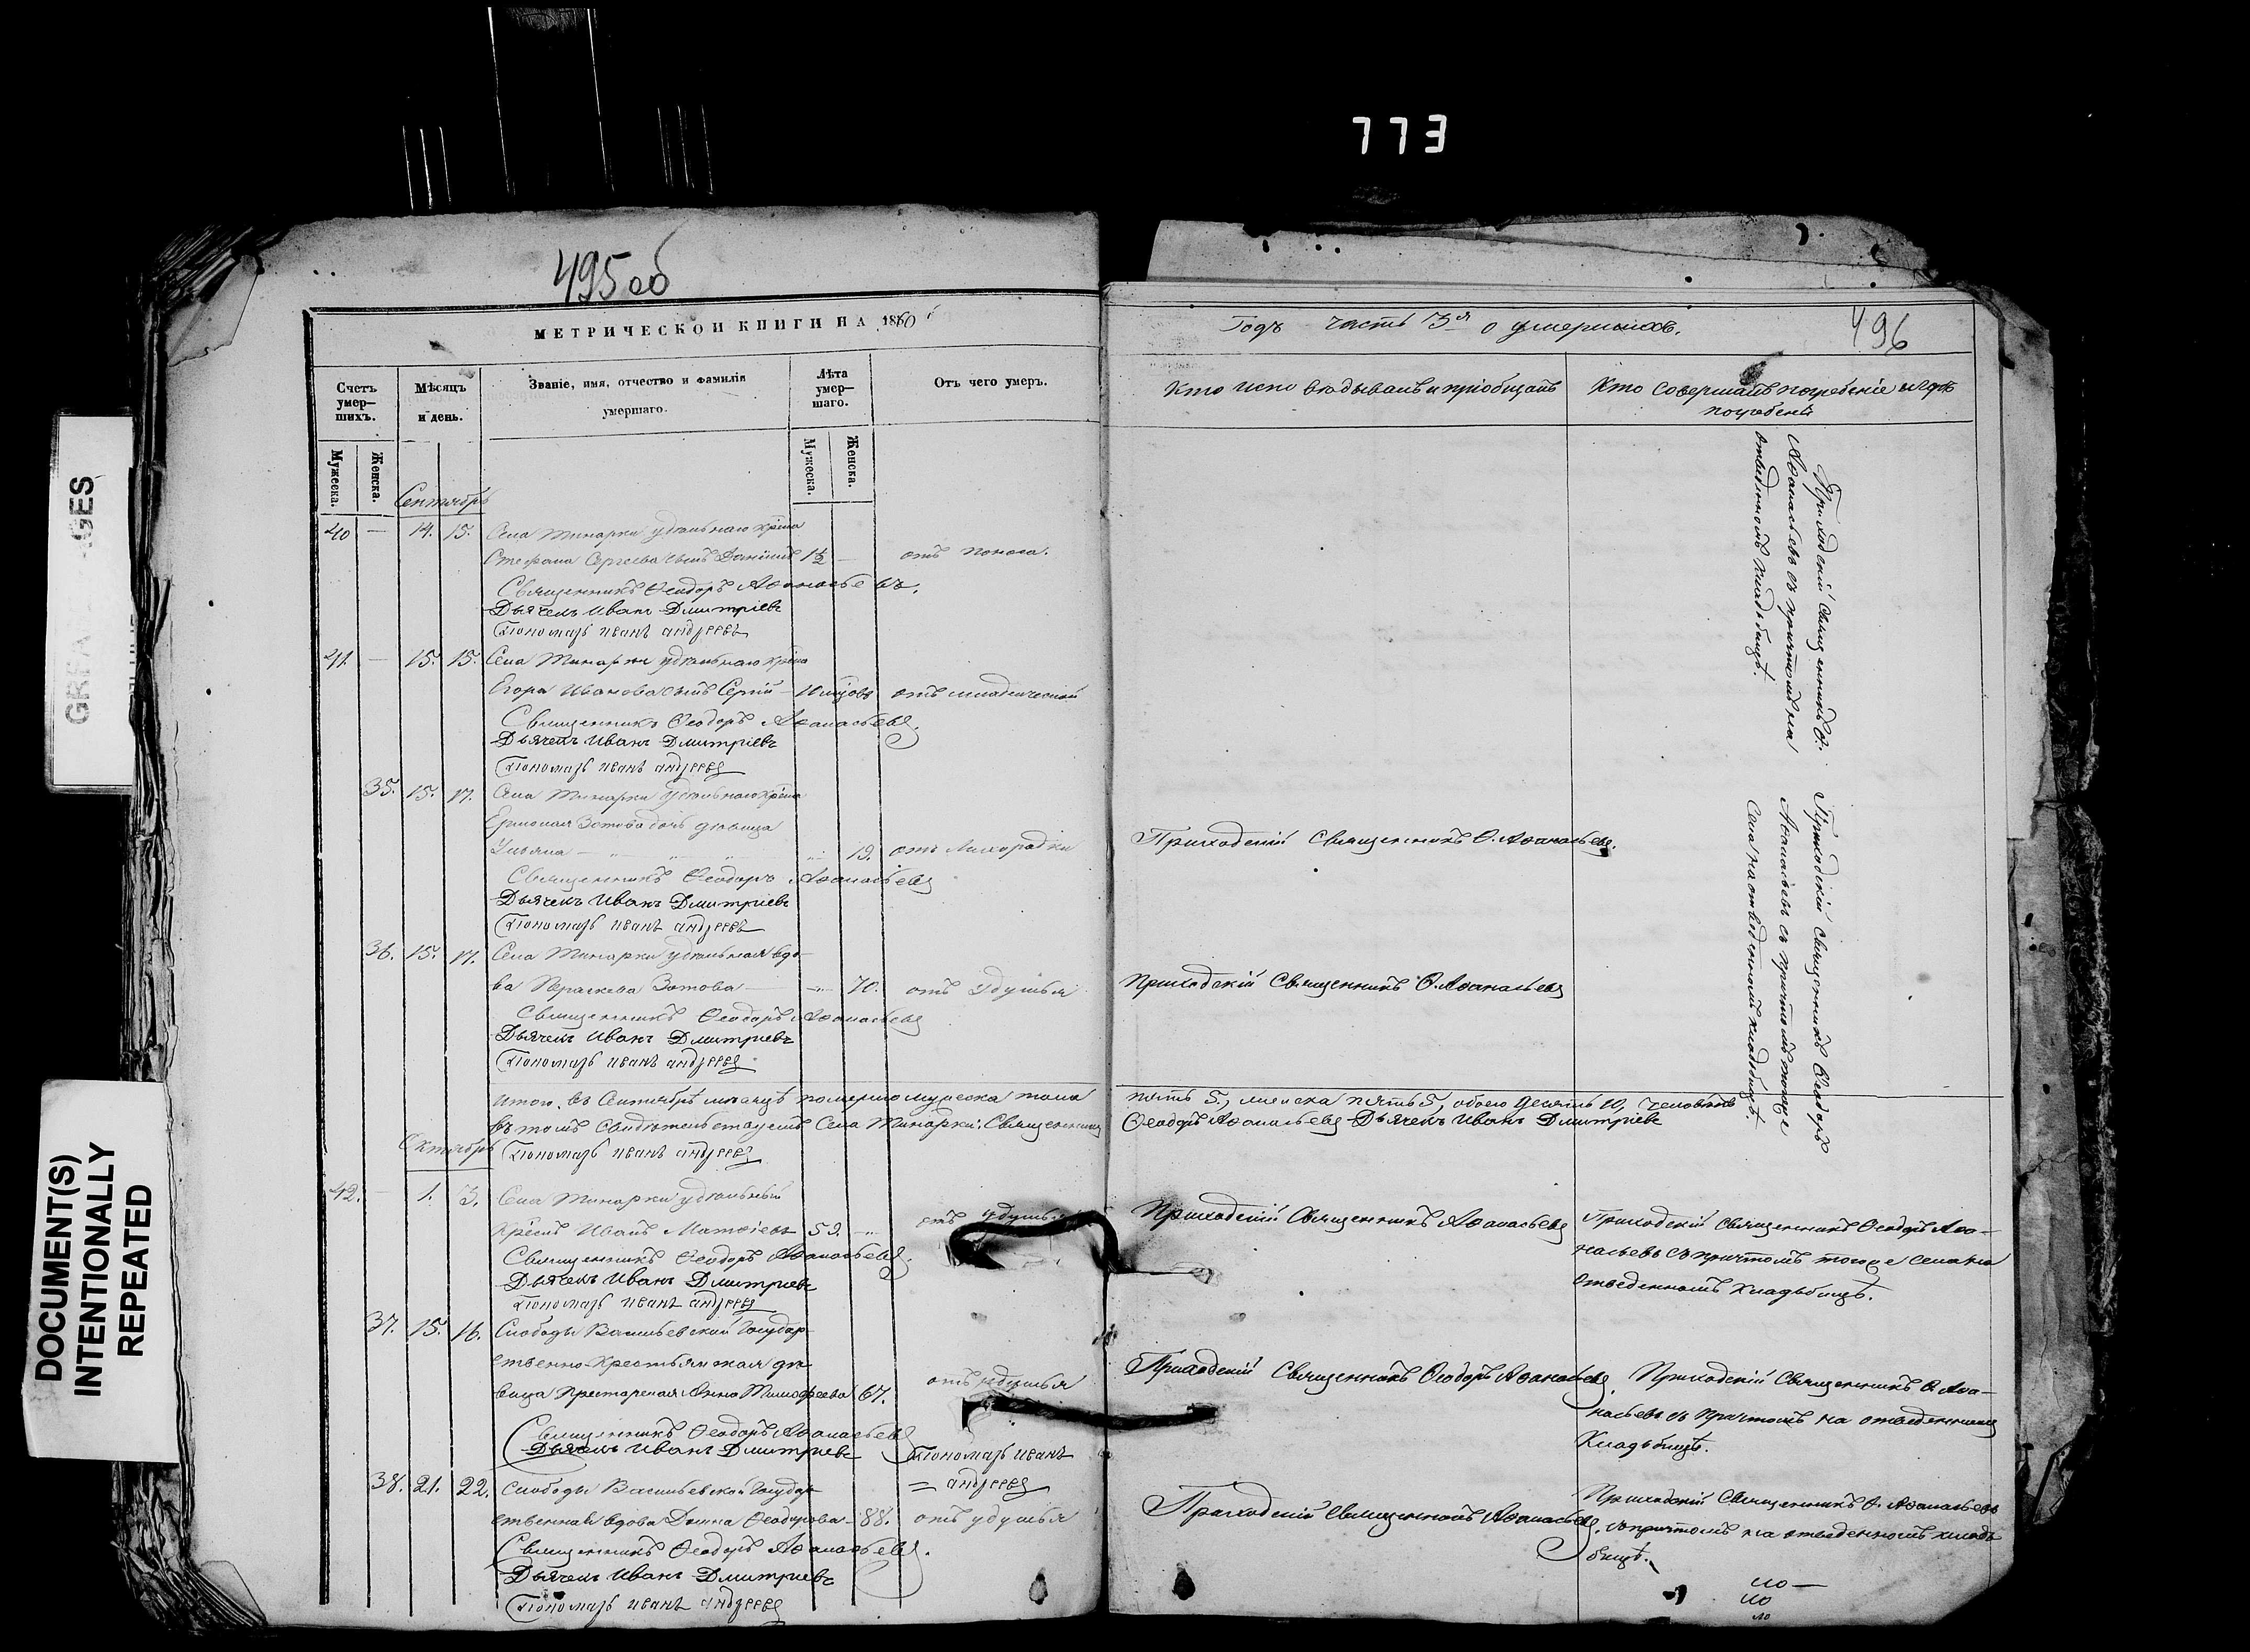 773
495 об
МЕТРИЧЕСКОИ КНИГИ НА 1860
Счетъ умер-шихъ.
Мѣсяцъ и день.
Званіе, имя, отчество и фамилія умершаго.
Лѣта умер-шаго.
Отъ чего умеръ.
Мужеска.
Женска.
Мужеска.
Женска.
Сентябрь
40 — 14. 15. Села Тинарки удѣльнаго крѣна
Стефана Сергѣева сынъ Даніилъ 1½ — отъ поноса.
Священникъ Ѳеодоръ Аѳанасьевъ.
Дьячекъ Иванъ Дмитріевъ
Пономарь иванъ андреевъ
41. — 15. 15. Села Тинарки удѣльнаго крѣна
Егора Иванова сынъ Сергій — отъ младенческой
Священникъ Ѳеодоръ Аѳанасьевъ.
Дьячекъ Иванъ Дмитріевъ
Пономарь иванъ андреевъ
35. 15. 17. Села Тинарки удѣльнаго крѣна
Зотова дочь дѣвица
Ульяна — 19. отъ Лихорадки
Священникъ Ѳеодоръ Аѳанасьевъ
Дьячекъ Иванъ Дмитріевъ
Пономарь иванъ андреевъ
36. 15. 17. Села Тинарки удѣльная вдо-
ва Праскева Зотова — 70. отъ удушья
Священникъ Ѳеодоръ Аѳанасьевъ
Дьячекъ Иванъ Дмитриевъ
Пономарь иванъ андреевъ
Итого въ Сентябрѣ мѣсяцѣ померло мужеска пола
въ томъ Свидѣтельствуемъ Села Тинарки. Священникъ
Октябрь
Пономарь иванъ андреевъ
42. — 1. 3. Села Тинарки удѣльный
Крѣснъ Иванъ Матѳіевъ 59. отъ удушья
Священникъ Ѳеодоръ Аѳанасьевъ.
Дьячекъ Иванъ Дмитриевъ
Пономарь иванъ андреевъ
37. 15. 16. Слободы Васильевской Государ-
ственно-Крестьянская дѣ-
вица престарелая Анна Тимоѳеева 67. отъ удушья
Священникъ Ѳеодоръ Аѳанасьевъ
Дьячекъ Иванъ Дмитриевъ Пономарь иванъ
= андреевъ
38. 21. 22. Слободы Васильевской Государ-
ственная вдова Домна Ѳеодорова — 88. отъ удушья
Священникъ Ѳеодоръ Аѳанасьевъ.
Дьячекъ Иванъ Дмитриевъ
Пономарь иванъ андреевъ
496
Годъ часть 3я о умершихъ.
Кто исповѣдывалъ и пріобщалъ
Кто совершалъ погребеніе и гдѣ
погребены
Приходскій священникъ Ѳ.
Аѳанасьевъ съ причтомъ на
отведенномъ кладбищѣ.
Приходскій Священникъ Ѳ. Аѳанасьевъ.
Приходскій священникъ Ѳеодоръ
Аѳанасьевъ съ причтомъ тогоже
села на отведенномъ кладбищѣ.
Приходскій Священникъ Ѳ. Аѳанасьевъ
пять 5, женска пять 5, обоего десять 10, человѣкъ
Ѳеодоръ Аѳанасьевъ Дьячекъ Иванъ Дмитріевъ
Приходскій Священникъ Аѳанасьевъ
Приходскій священникъ Ѳеодоръ Аѳа-
насьевъ съ причтомъ тогоже села на
отведенномъ кладбищѣ.
Приходскій Священникъ Ѳеодоръ Аѳанасьевъ.
Приходскій Священникъ Ѳ. Аѳа-
насьевъ съ причтомъ на отведенномъ
Кладбищѣ.
Приходскій Священникъ Аѳанасьевъ.
Приходскій Священникъ Ѳ. Аѳанасьевъ
съ причтомъ на отведенномъ клад-
бищѣ.
DOCUMENT(S)
INTENTIONALLY
REPEATED